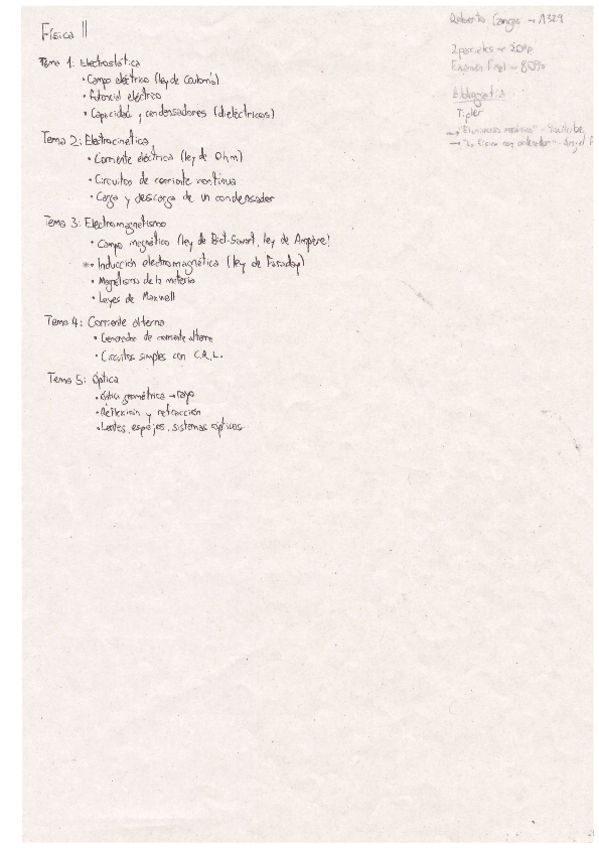 Física II
Tema 1: Electrostática
• Campo eléctrico (ley de Coulomb)
• Potencial eléctrico
• Capacidad y condensadores (dieléctricos)
Tema 2: Electrocinética
• Corriente eléctrica (ley de Ohm)
• Circuitos de corriente continua
• Carga y descarga de un condensador
Tema 3: Electromagnetismo
• Campo magnético (ley de Biot-Savart, ley de Ampère)
• Inducción electromagnética (ley de Faraday)
• Magnetismo de la materia
• Leyes de Maxwell
Tema 4: Corriente alterna
• Generador de corriente alterna
• Circuitos simples con C.R.L.
Tema 5: Óptica
• Óptica geométrica → rayo
• Reflexión y refracción
• Lentes, espejos, sistemas ópticos
Roberto → A329
2 parciales → 20%
Examen final → 80%
Bibliografía
Tipler
→ "Universo mecánico" - YouTube
→ "La Física con ordenador" - Ángel F